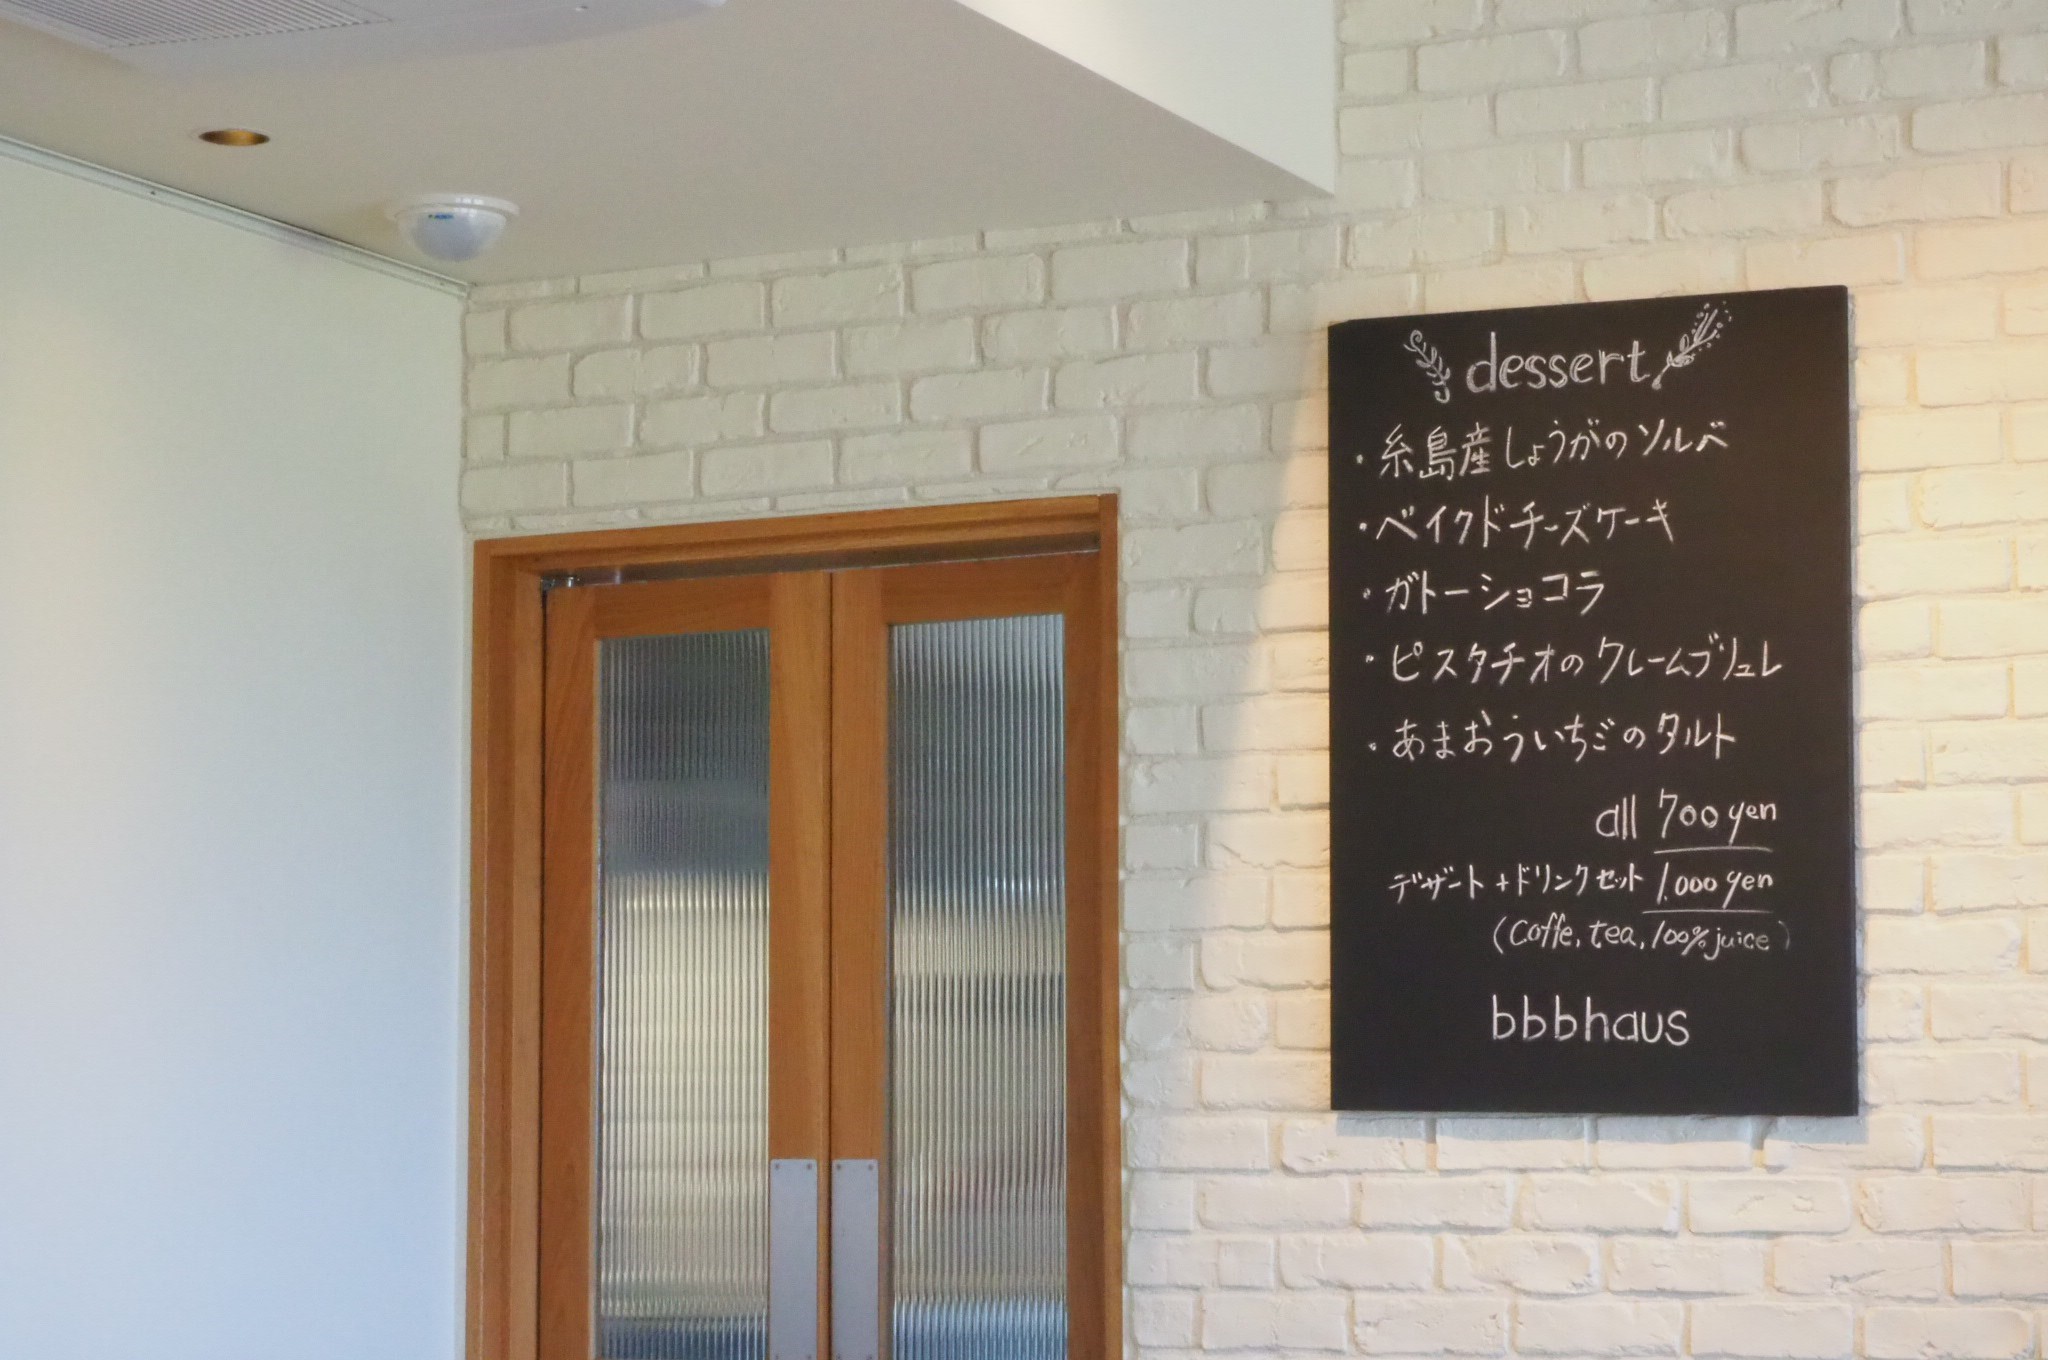 dessert
・糸島産しょうがのソルベ
・ベイクドチーズケーキ
・ガトーショコラ
・ピスタチオのクレームブリュレ
・あまおういちごのタルト
all 700yen
デザート+ドリンクセット 1,000yen
(Coffe, tea, 100% juice)
bbbhaus